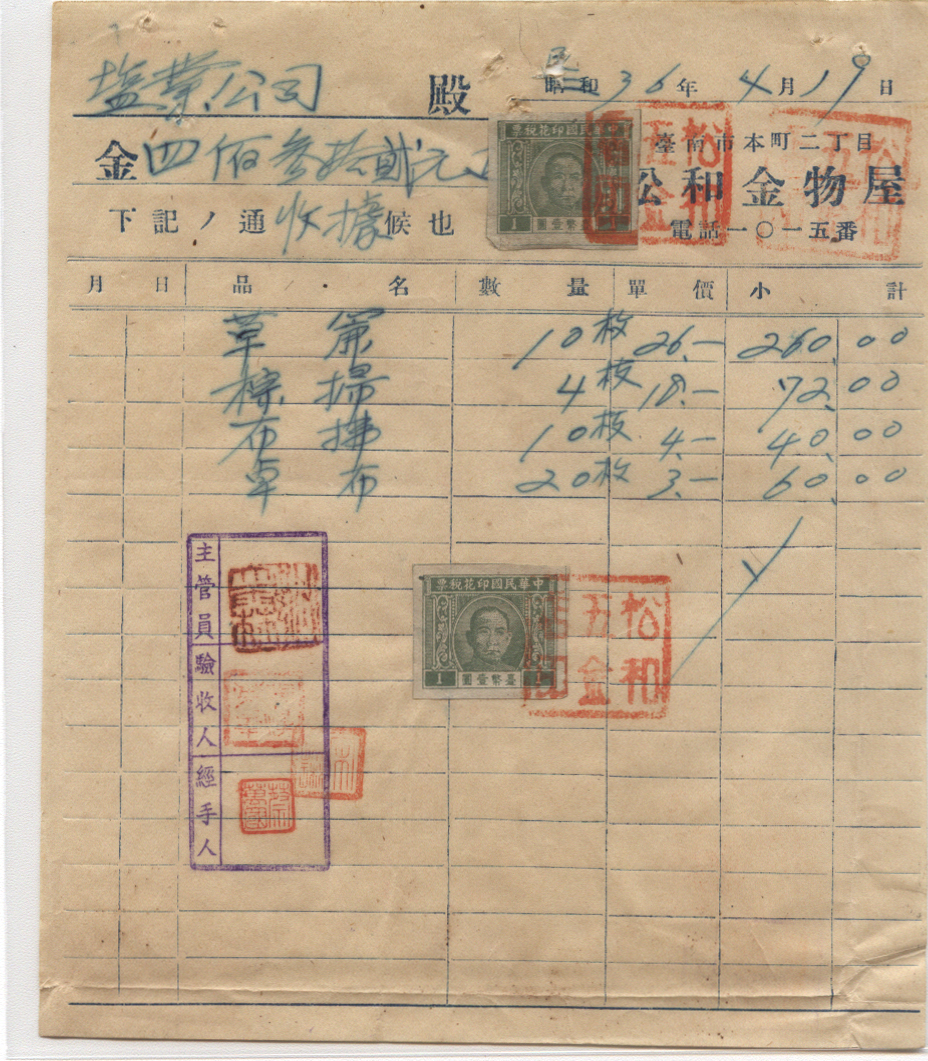 塩業公司 殿
民 昭和36年4月19日
金四佰參拾貳元
臺南市本町二丁目
松和金物屋
電話一〇一五番
下記ノ通收據候也
中華民國印花稅票
1 臺幣壹圓
松和五金
松和五金
月 日 品・名 數量 單價 小計
草 10枚 26.- 260.00
棕掃 4枝 18.- 72.00
布拂 10枚 4.- 40.00
卓布 20枚 3.- 60.00
主管員
驗收人
經手人
中華民國印花稅票
1 臺幣壹圓 1
松和五金